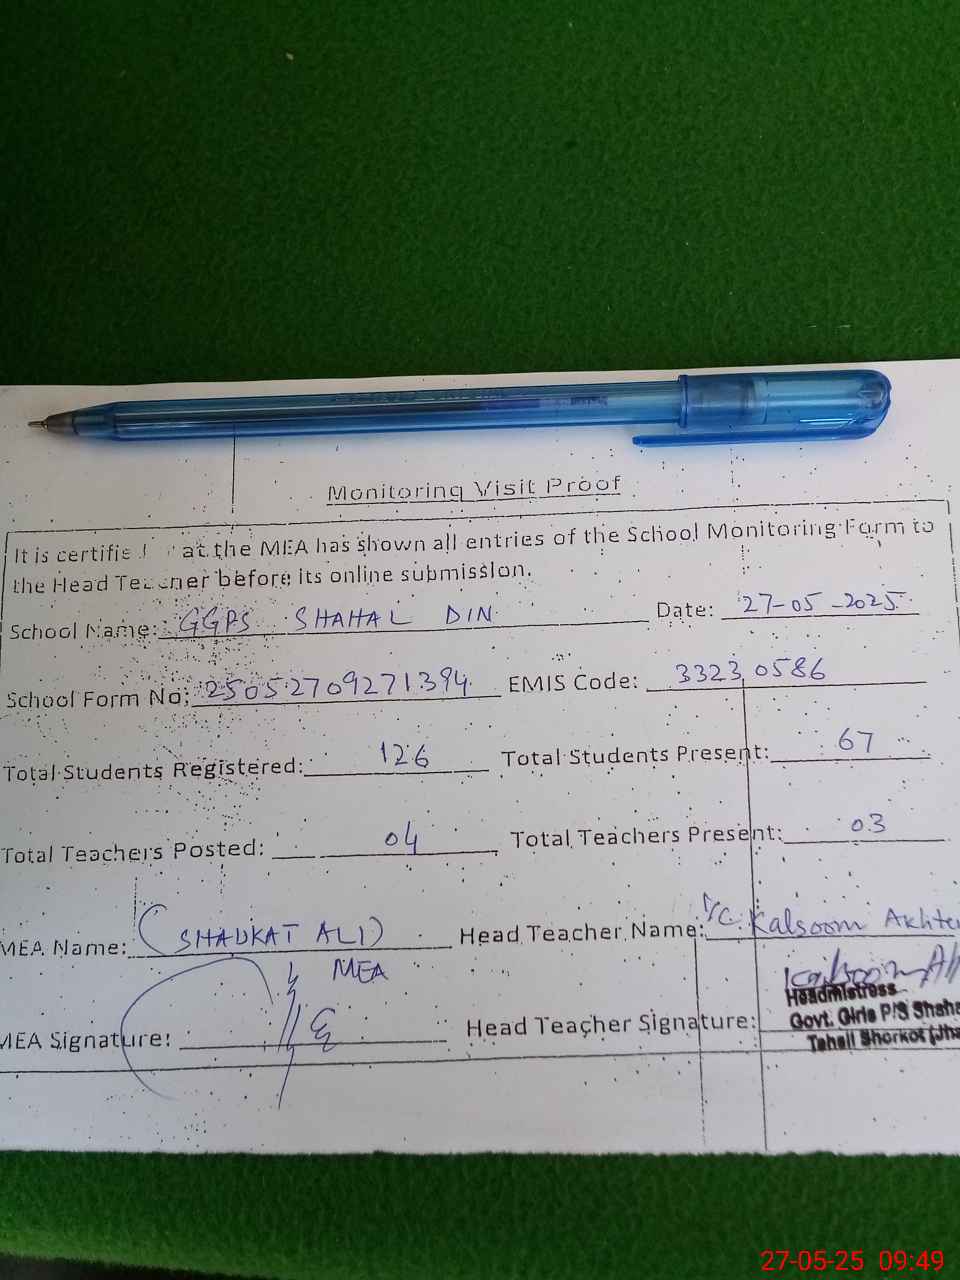 Monitoring Visit Proof
It is certifie at the MEA has shown all entries of the School Monitoring Form to
the Head Teacher before its online submission.
School Name: GGPS SHAHAL DIN Date: 27-05-2025
School Form No: 25052709271394 EMIS Code: 33230586
Total Students Registered: 126 Total Students Present: 67
Total Teachers Posted: 04 Total Teachers Present: 03
MEA Name: (SHAUKAT ALI) Head Teacher Name: I/C. Kalsoom Akhte
MEA
MEA Signature: Head Teacher Signature: Kalsoom
Headmistress
Govt. Girls P/S Shaha
Tehsil Shorkot (Jha
27-05-25 09:49